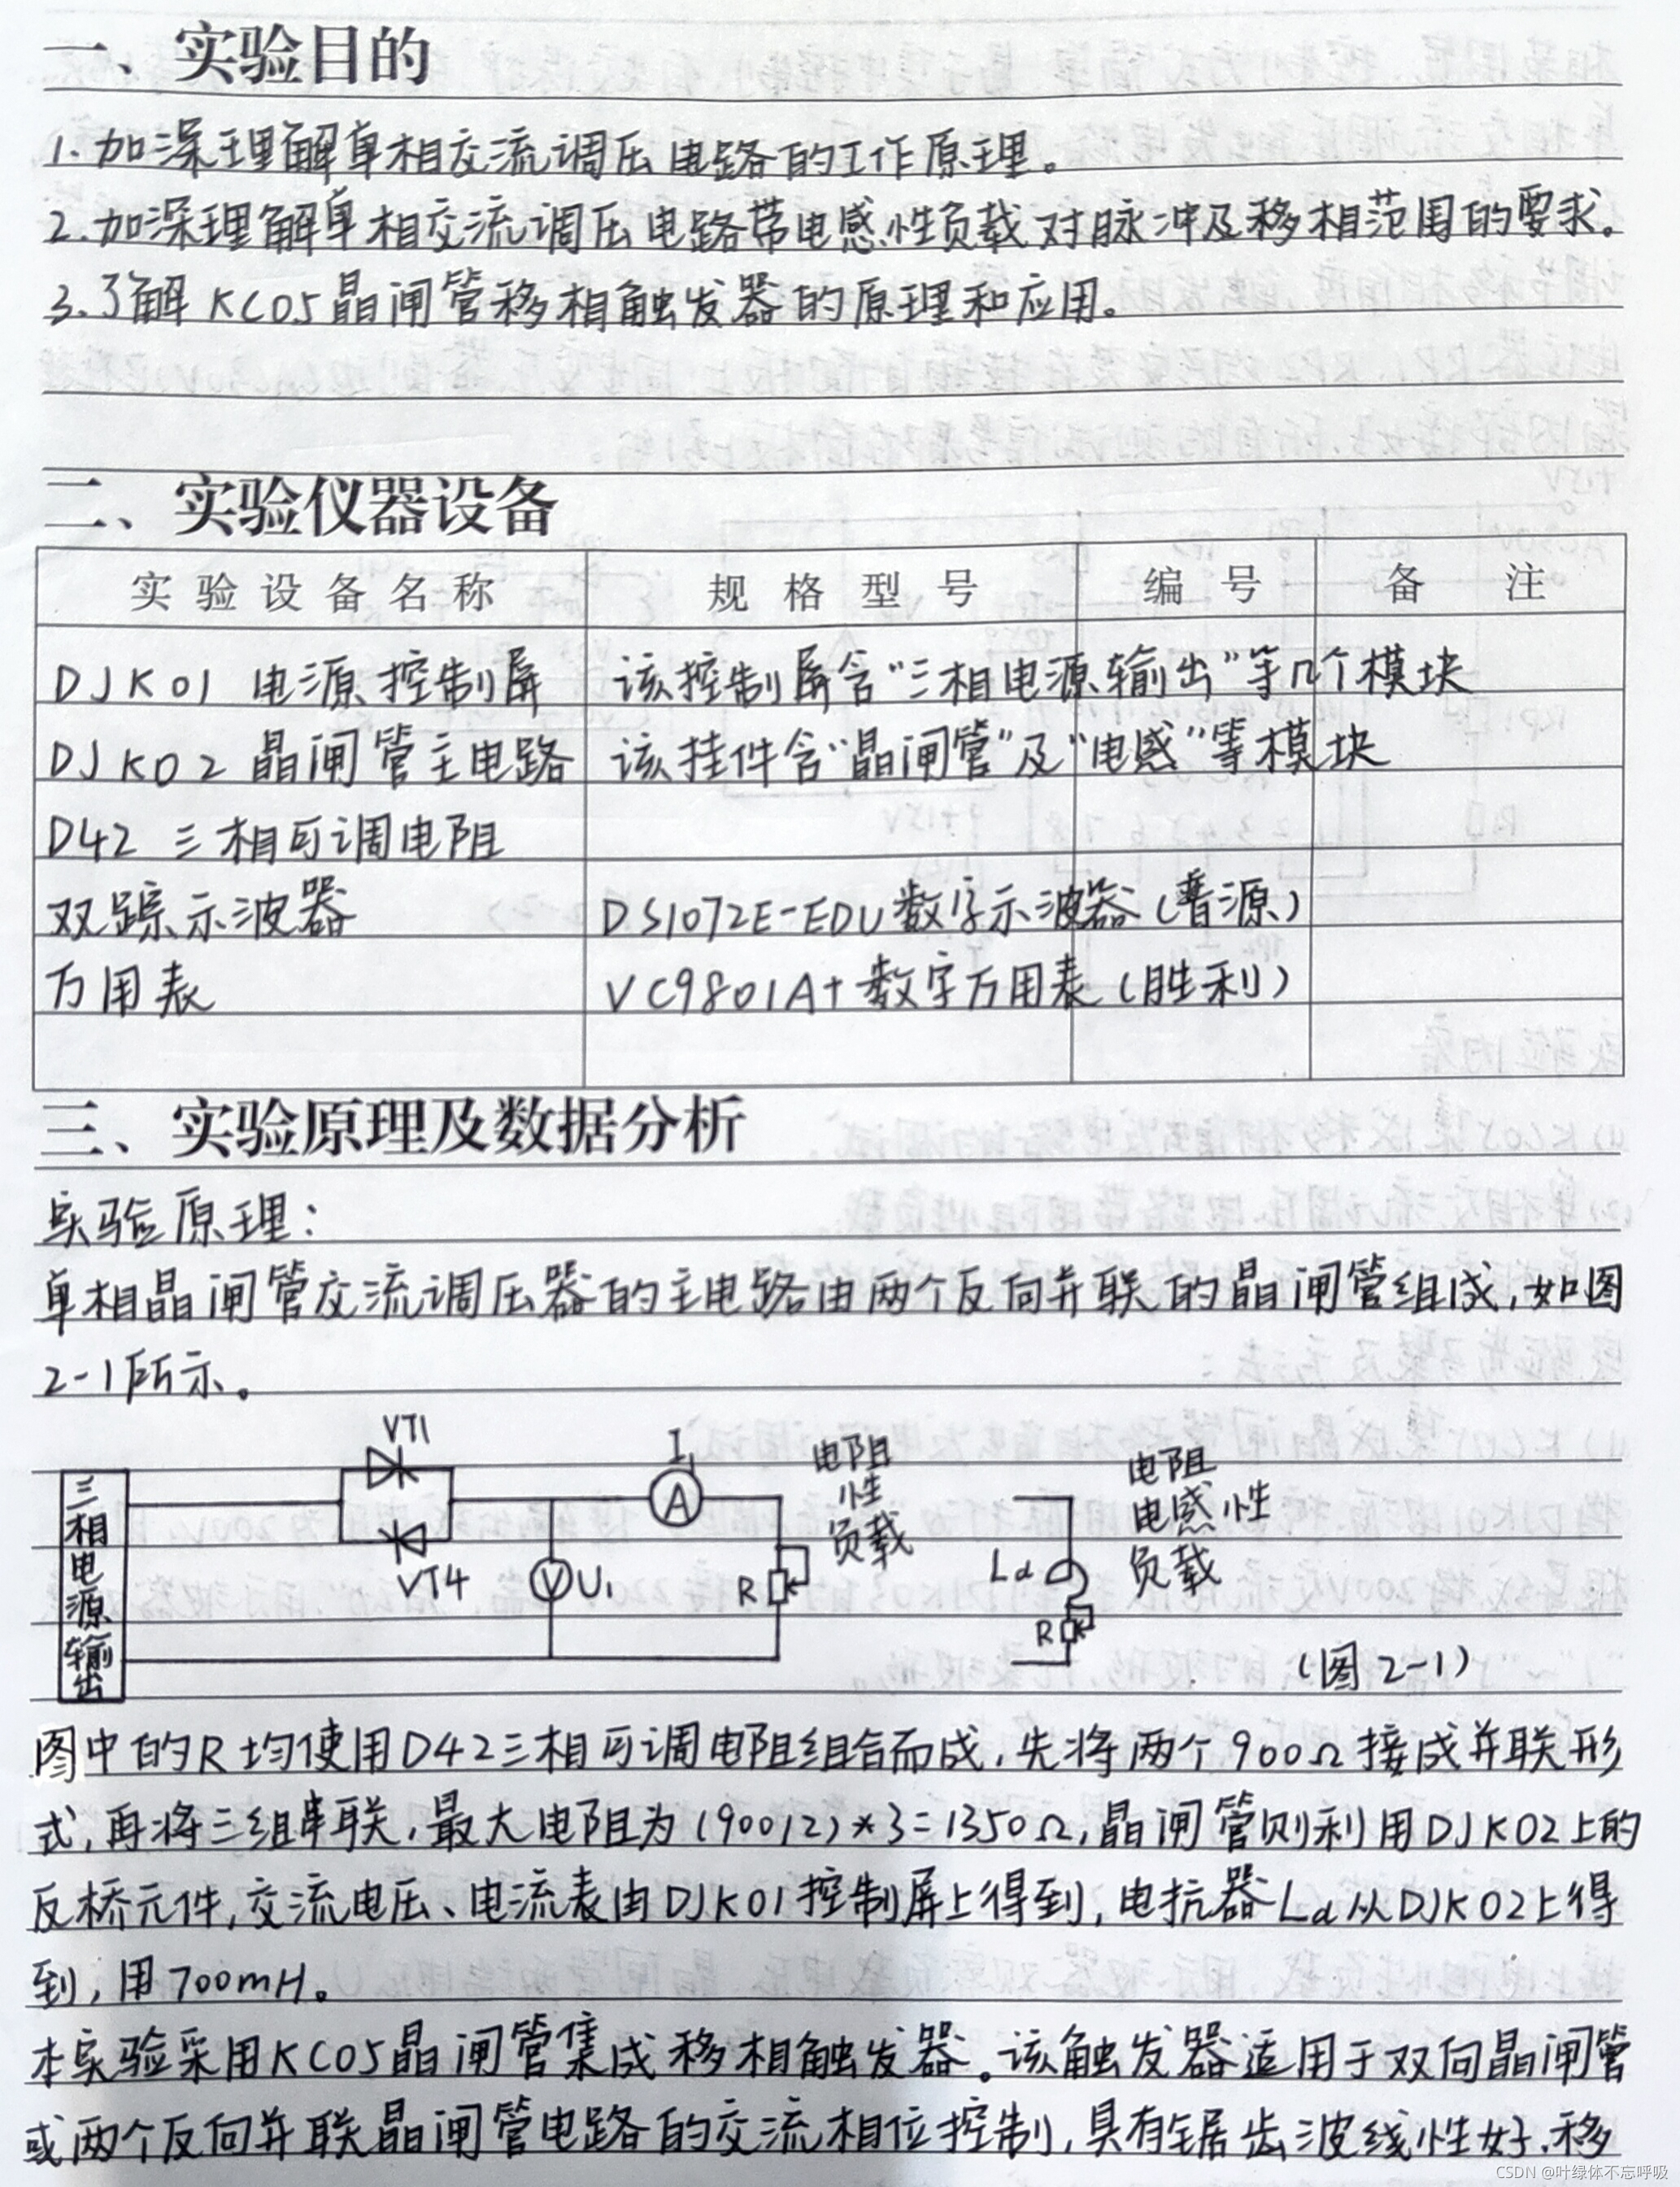 一、实验目的
1.加深理解单相交流调压电路的工作原理。
2.加深理解单相交流调压电路带电感性负载对脉冲及移相范围的要求。
3.了解KC05晶闸管移相触发器的原理和应用。
二、实验仪器设备
实验设备名称 规格型号 编号 备注
DJK01 电源控制屏 该控制屏含“三相电源输出”等几个模块
DJK02 晶闸管主电路 该挂件含“晶闸管”及“电感”等模块
D42 三相可调电阻
双踪示波器 DS1072E-EDU数字示波器(普源)
万用表 VC9801A+数字万用表(胜利)
三、实验原理及数据分析
实验原理:
单相晶闸管交流调压器的主电路由两个反向并联的晶闸管组成,如图
2-1所示。
三相电源输出
VT1
VT4
I1
A
V U1
R
电阻
性
负载
Ld
R
电阻
电感性
负载
(图2-1)
图中的R均使用D42三相可调电阻组合而成,先将两个900Ω接成并联形
式,再将三组串联,最大电阻为(900/2)*3=1350Ω,晶闸管则利用DJK02上的
反桥元件,交流电压、电流表由DJK01控制屏上得到,电抗器Ld从DJK02上得
到,用700mH。
本实验采用KC05晶闸管集成移相触发器。该触发器适用于双向晶闸管
或两个反向并联晶闸管电路的交流相位控制,具有锯齿波线性好、移
CSDN @叶绿体不忘呼吸